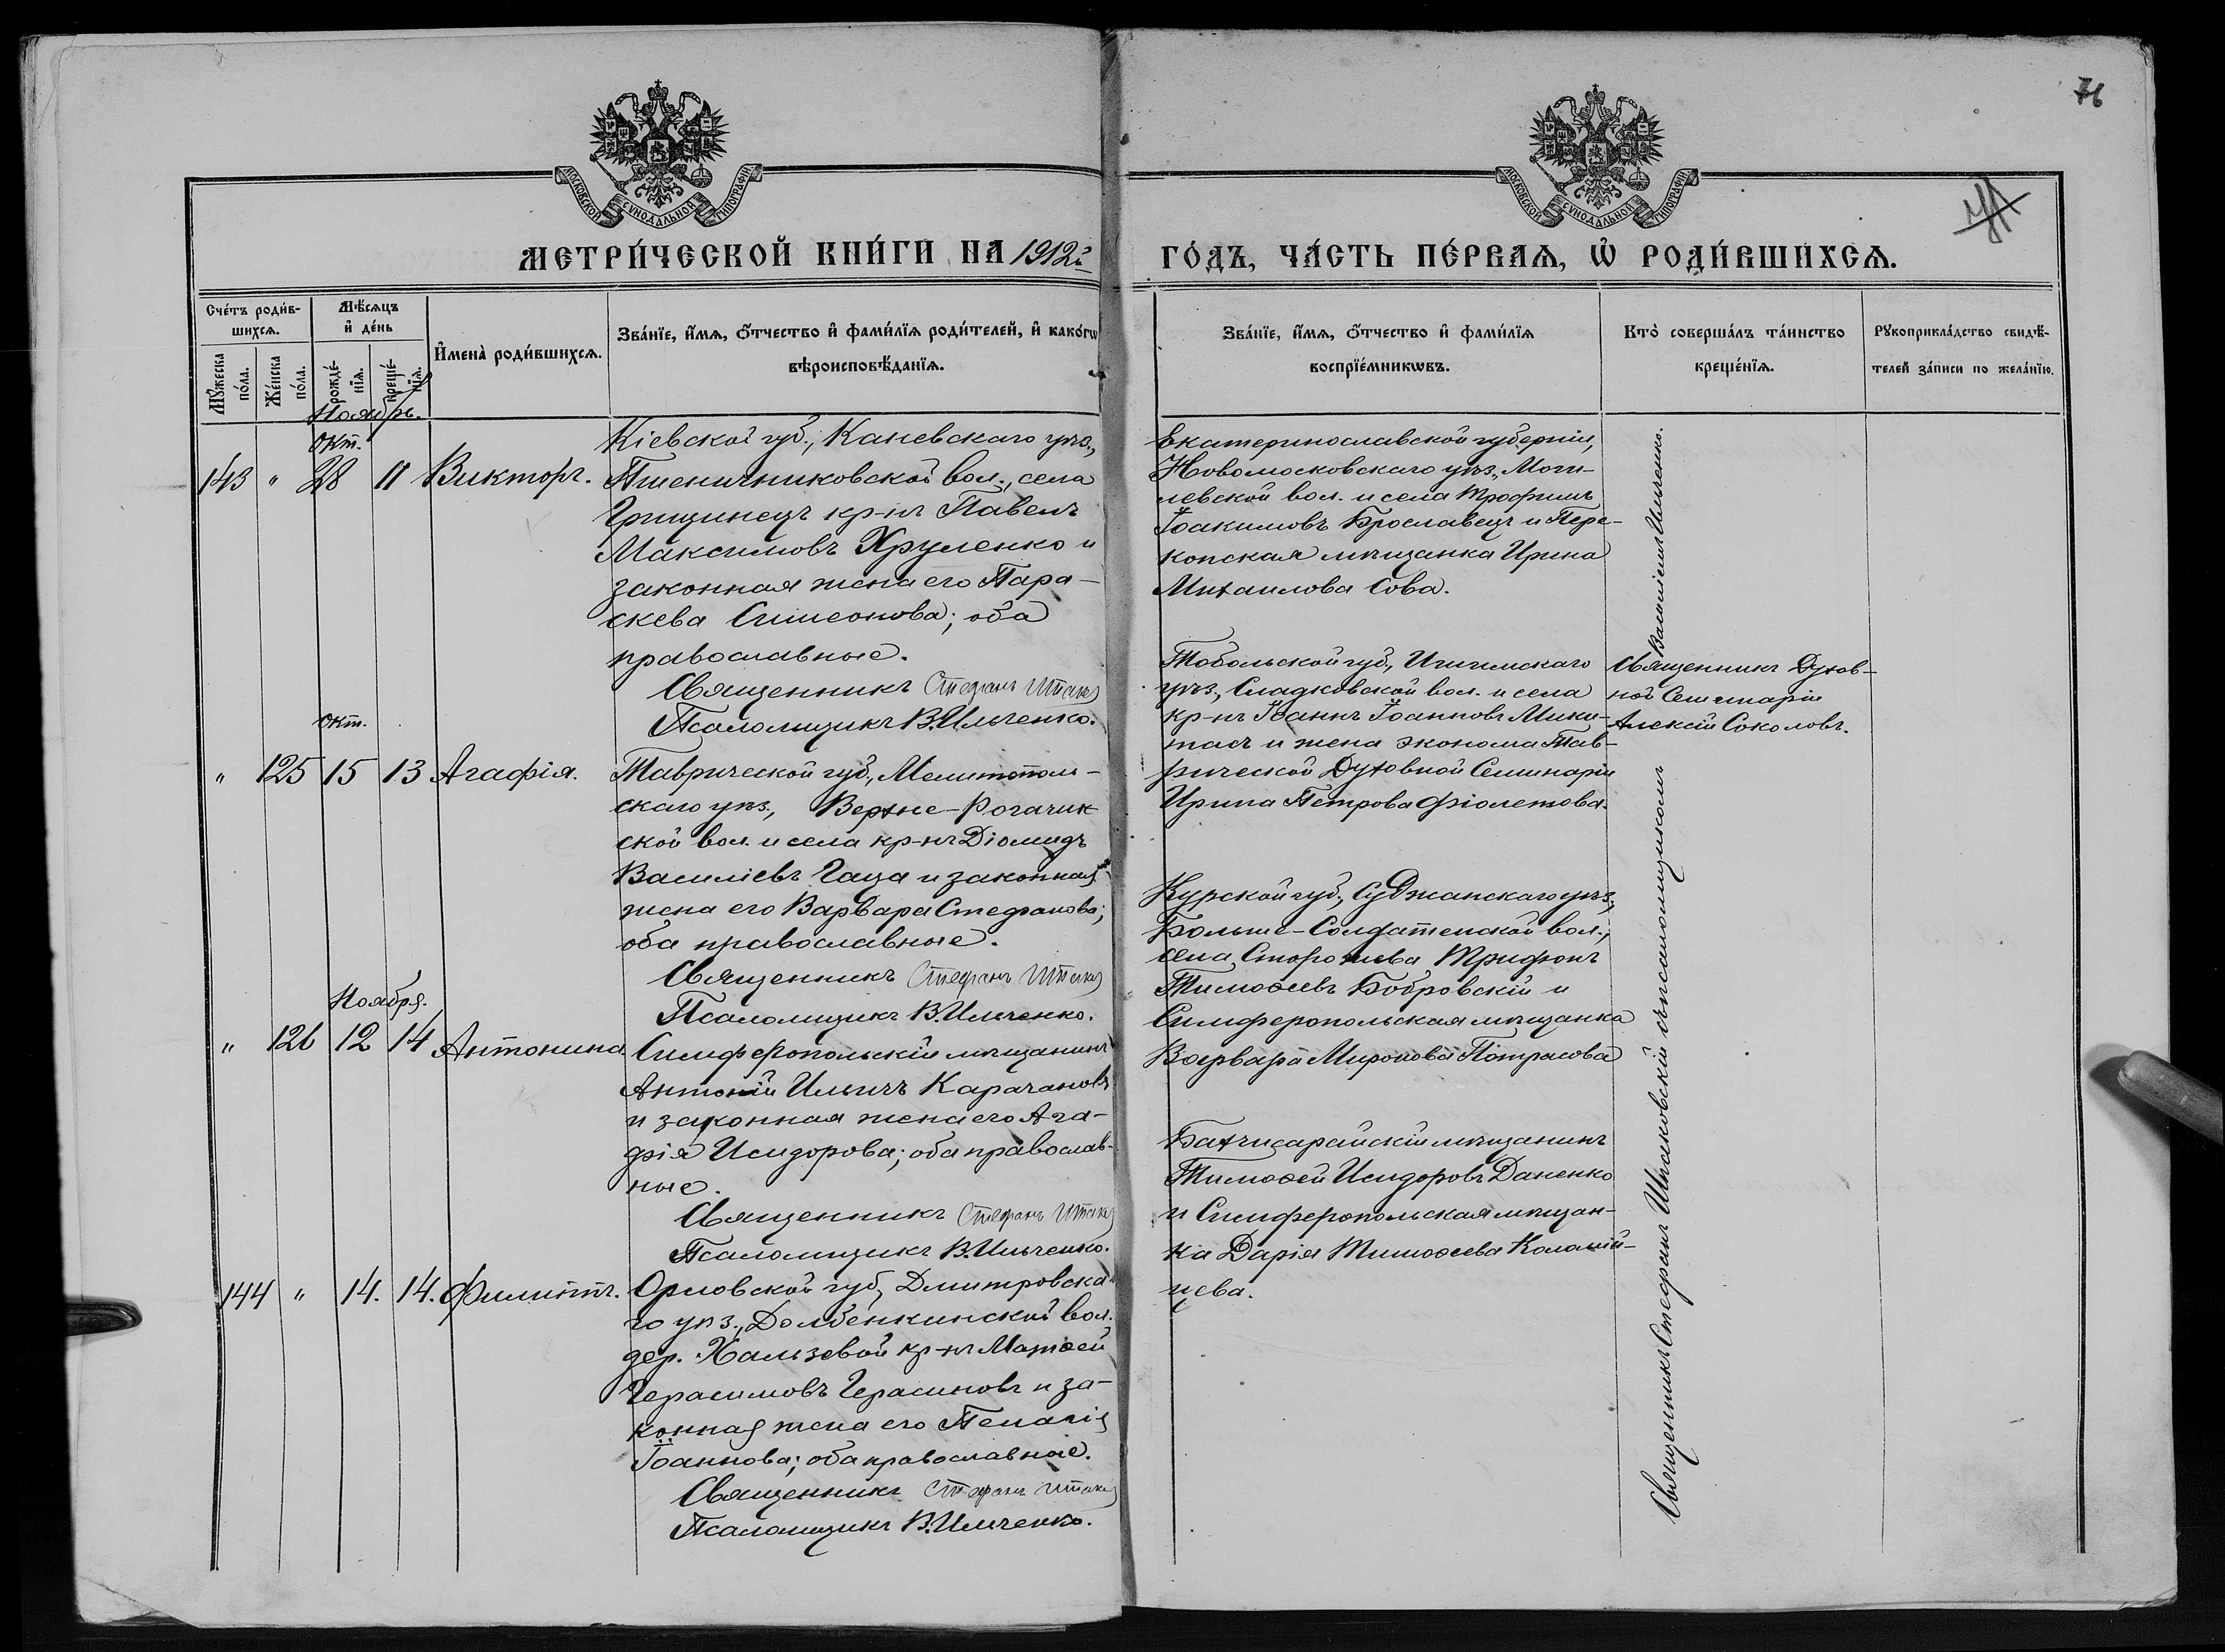 76
МОСКОВСКОЙ СѴНОДАЛЬНОЙ ТИПОГРАФІИ
МОСКОВСКОЙ СѴНОДАЛЬНОЙ ТИПОГРАФІИ
МЕТРИ́ЧЕСКОЙ КНИ́ГИ НА 1912й
ГО́ДЪ, ЧА́СТЬ ПЕ́РВАѦ, Ѡ҆ РОДИ́ВШИХСѦ.
Сче́тъ роди́в-
шихсѧ.
Мѣ́сѧцъ
и҆ де́нь
Мꙋ́жеска
по́ла.
Же́нска
по́ла.
рожде́-
нїѧ.
креще́-
нїѧ.
И҆мена̀ роди́вшихсѧ.
Зва́нїе, и҆́мѧ, ѻ҆́тчество и҆ фами́лїѧ роди́телей, и҆ како́гѡ
вѣроисповѣ́данїѧ.
Зва́нїе, и҆́мѧ, ѻ҆́тчество и҆ фами́лїѧ
воспрїе́мникѡвъ.
Кто̀ соверша́лъ та́инство
креще́нїѧ.
Рꙋкоприкла́дство свидѣ́-
телей за́писи по жела́нїю.
Ноябрь.
Окт.
143 " 28 11 Викторъ.
Кіевской губ., Каневскаго уѣз.,
Пшеничниковской вол., села
Грищинецъ кр-нъ Павелъ
Максимовъ Хруленко и
законная жена его Пара-
скева Симеонова; оба
православные.
Священникъ Стефанъ
Псаломщикъ В. Ильченко.
Екатеринославской губерніи,
Новомосковскаго уѣз., Моги-
левской вол. и села Трофимъ
Іоакимовъ Брославецъ и Пере-
копская мѣщанка Ирина
Михаилова Сова.
Окт.
" 125 15 13 Агафія.
Таврической губ., Мелитополь-
скаго уѣз., Верхне-Рогачик
ской вол. и села кр-нъ Діомидъ
Василіевъ Гаца и законная
жена его Варвара Стефанова;
оба православные.
Священникъ Стефанъ
Псаломщикъ В. Ильченко.
Тобольской губ., Ишимскаго
уѣз., Сладковской вол. и села
кр-нъ Іоаннъ Іоанновъ Мики-
тасъ и жена эконома Тав-
рической Духовной Семинаріи
Ирина Петрова Фіолетова.
Священникъ Духов-
ной Семинаріи
Алексій Соколовъ.
Ноября.
" 126 12 14 Антонина.
Симферопольскій мѣщанинъ
Антоній Ильичъ Карачановъ
и законная жена его Ага-
фія Исидорова; оба православ-
ные.
Священникъ Стефанъ
Псаломщикъ В. Ильченко.
Курской губ., Суджанскаго уѣз.,
Больше-Солдатской вол.,
села Сторожева Трифонъ
Тимоѳеевъ Бобровскій и
Симферопольская мѣщанка
Варвара Миронова Потрасова
144 " 14. 14. Филиппъ.
Орловской губ., Дмитровска
го уѣз., Долбенкинской вол.
дер. Хальзевой кр-нъ Матѳей
Герасимовъ Герасимовъ и за-
конная жена его Пелагія
Іоаннова; оба православные.
Священникъ Стефанъ
Псаломщикъ В. Ильченко.
Бахчисарайскій мѣщанинъ
Тимоѳей Исидоровъ Даненко
и Симферопольская мѣщан-
ка Дарія Тимоѳеева Коломій-
цева.
Священникъ Стефанъ Штаковскій съ псаломщикомъ Василіемъ Ильченко.